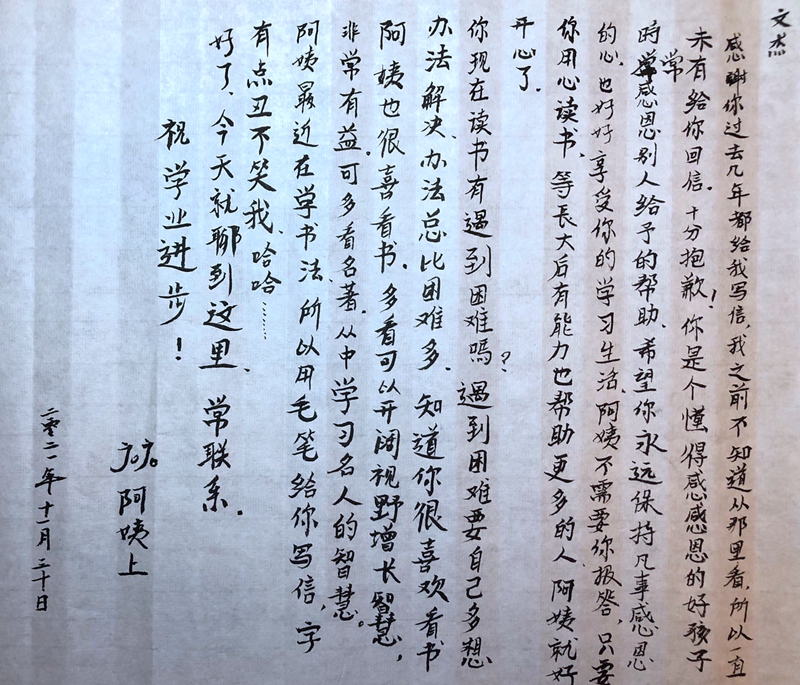 文杰
感谢你过去几年都给我写信,我之前不知道从那里看,所以一直
未有给你回信.十分抱歉!你是个懂得感感恩的好孩子
时常感恩别人给予的帮助.希望你永远保持凡事感恩
的心.也好好享受你的学习生活.阿姨不需要你报答,只要
你用心读书、等長大后有能力也帮助更多的人.阿姨就好
开心了.
你现在读书有遇到困难嗎?遇到困难要自己多想
办法解决、办法总比困难多.知道你很喜欢看书
阿姨也很喜看书.多看可以开阔视野增长智慧,
非常有益.可多看名著.从中学习名人的智慧。
阿姨最近在学书法、所以用毛笔给你写信,字
有点丑不笑我、哈哈……
好了、今天就聊到这里、常联系.
祝学业进步!
阿姨上
二零二一年十一月三十日